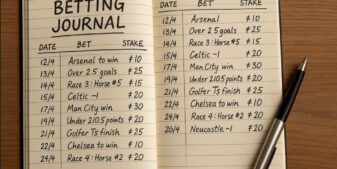 BETTING
JOURNAL
DATE BET STAKE
12/4 Arsenal to win £10
13/4 Over 2.5 goals £25
14/4 Race 3: Horse #5 £15
15/4 Celtic -1 £20
17/4 Man City win £30
19/4 Under 210.5 points £20
21/4 Golfer T5 finish £25
22/4 Chelsea to win £10
24/4 Race 4: Horse #2 £20
DATE BET STAKE
12/4 Arsenal £10
13/4 Over 2.5 goals £25
Race 3: Horse #5
15/4 Celtic -1 £20
17/4 Man City win
19/4 Under 210.5 points £20
21/4 Golfer T5 finish £25
22/4 Chelsea to win £10
24/4 Race 4: Horse #2 £20
Newcastle -1 £20